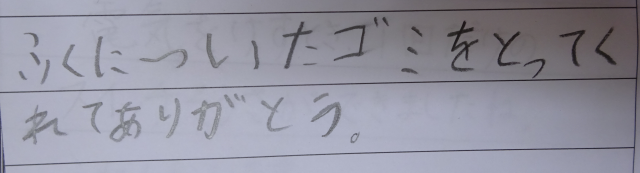 ふくについいたゴミをとってく
れてありがとう。